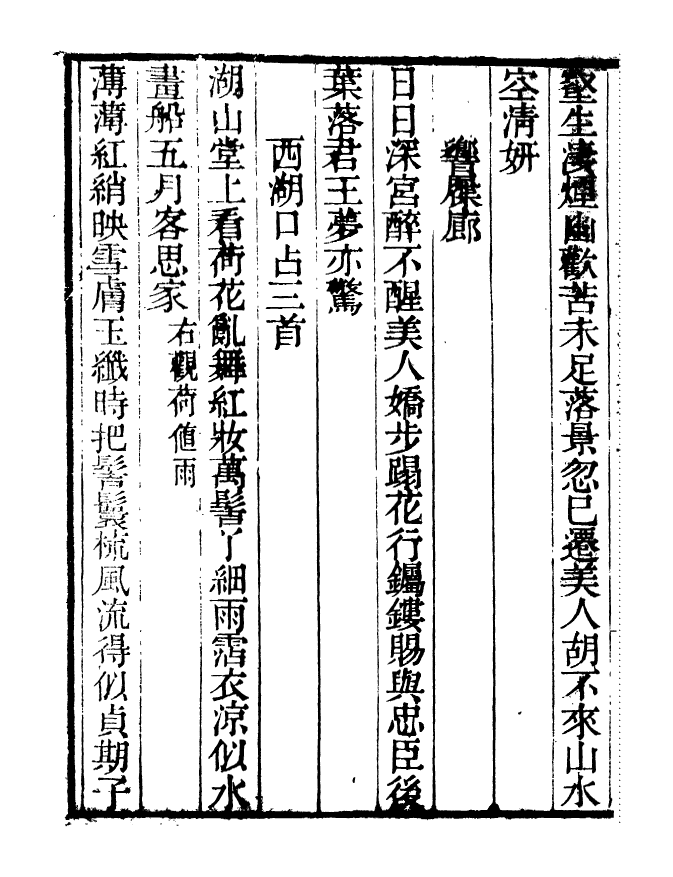 壑生淒煙幽歡苦未足落景忽已遷美人胡不來山水
空清妍
響屧廊
日日深宮醉不醒美人嬌步蹋花行钃鏤賜與忠臣後
葉落君王夢亦驚
西湖口占三首
湖山堂上看荷花亂舞紅妝萬髻丫細雨霑衣凉似水
畫船五月客思家右觀荷値雨
薄薄紅綃映雪膚玉纖時把髻鬟梳風流得似貞期子